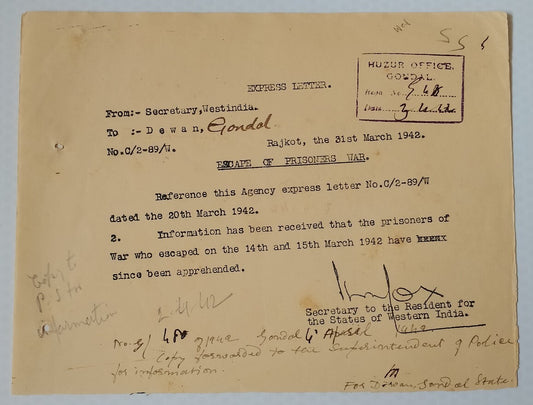 EXPRESS LETTER.
HUZUR OFFICE.
GONDAL.
Date 3.4.42
From:- Secretary,Westindia.
To :- D e w a n, Gondal
No.C/2-89/W.
Rajkot, the 31st March 1942.
ESCAPE OF PRISONERS WAR.
Reference this Agency express letter No.C/2-89/W
dated the 20th March 1942.
2. Information has been received that the prisoners of
War who escaped on the 14th and 15th March 1942 have
since been apprehended.
Secretary to the Resident for
the States of Western India.
Copy to
information
2.4.42
Gondal April 1942
Copy forwarded to the Superintendent of Police
for information.
For Dewan, Gondal State.